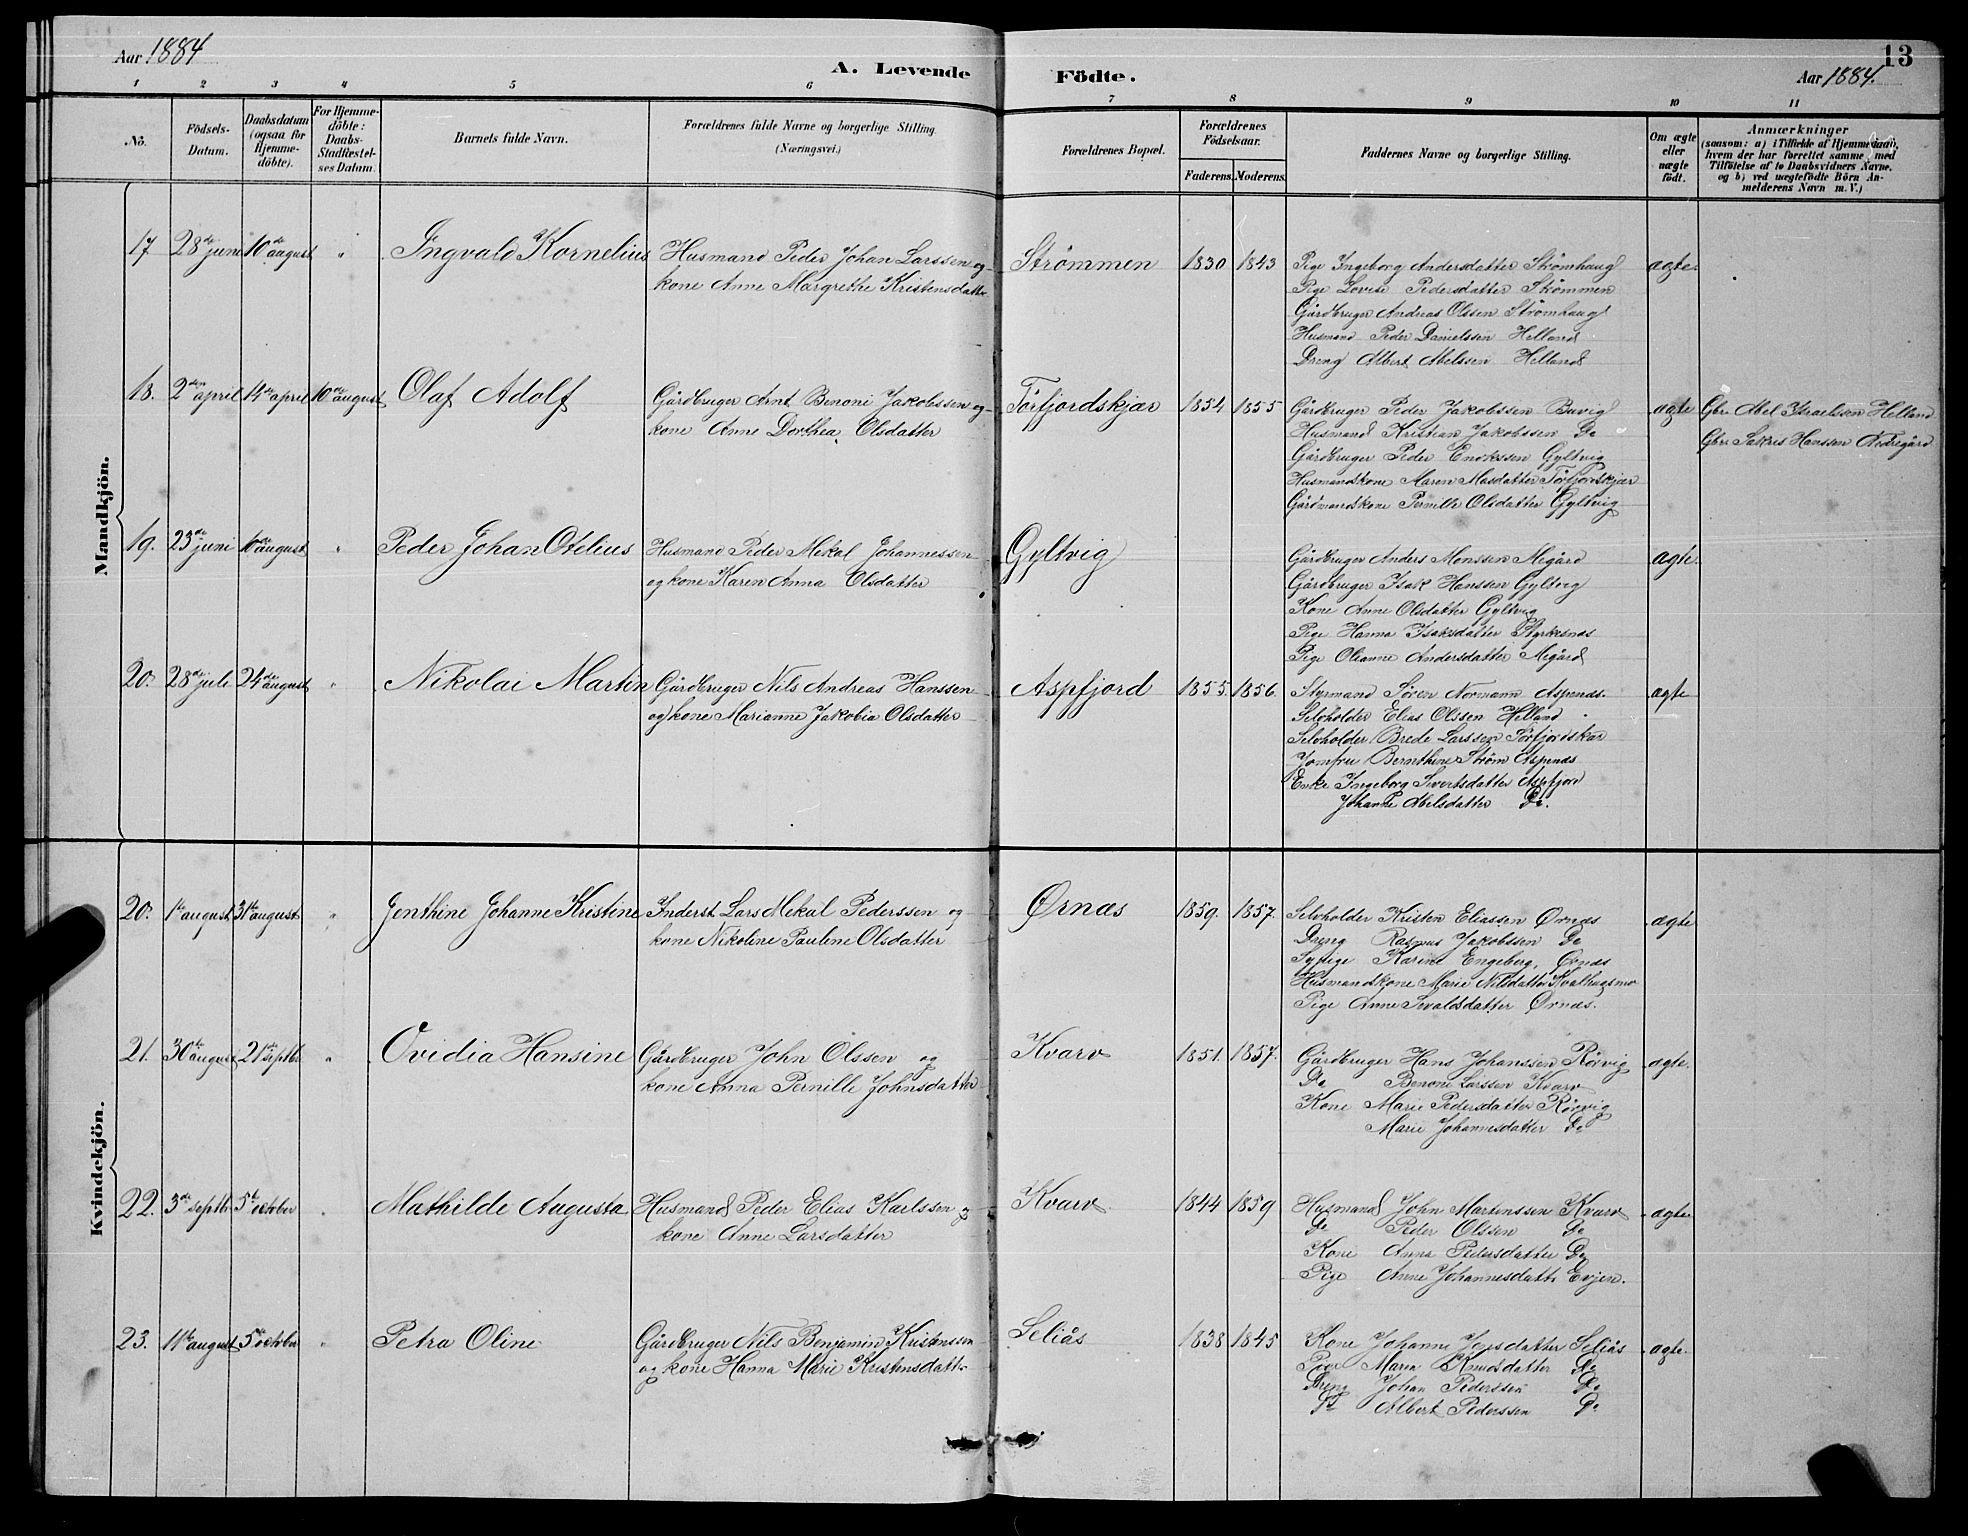 Aar 1884
A. Levende Födte.
13
Aar 1884.
1 2 3 4 5 6 7 8 9 10 11
No.
Födsels-Datum.
Daabsdatum (ogsaa for Hjemme-döbte).
For Hjemme-döbte: Daabs-Stadfæstel-ses Datum.
Barnets fulde Navn.
Forældrenes fulde Navne og borgerlige Stilling. (Næringsvei.)
Forældrenes Bopæl.
Forældrenes Födselsaar.
Faderens. Moderens.
Faddernes Navne og borgerlige Stilling.
Om ægte eller uægte födt.
Anmærkninger
(saasom: a) i Tilfælde af Hjemmedaab, hvem der har forrettet samme, med Tilföielse af to Daabsvidners Navne, og b) ved uægtefödte Börn An-melderens Navn m. V.)
Mandkjön.
17 28de juni 10de august " Ingvald Kornelius
Husmand Peder Johan Larssen og
kone Anne Margrethe Kristensdatter
Strömmen 1830 1843
Pige Ingeborg Andersdatter Strömhaug
Pige Lovise Pedersdatter Strömmen
Gårdbruger Andreas Olssen Strömhaug
Husmand Peder Danielssen Helland
Dreng Albert Abelssen Helland
ægte.
18. 2den april 14de april 10de august Olaf Adolf
Gårdbruger Arnt Benoni Jakobssen og
kone Anne Dorthea Olsdatter
Törfjordskjær 1854 1855
Gårdbruger Peder Jakobssen Buvig
Husmand Kristian Jakobssen Do
Gårdbruger Peder Enokssen Gyltvig
Husmandskone Maren Masdatter Törfjordskjær
Gårdmandskone Pernille Olsdatter Gyltvig
ægte
Gbr. Abel Israelssen Helland
Gbr. Sakris Hanssen Nedregård
19. 23de juni 10de august " Peder Johan Otelius
Husmand Peder Mekal Johannessen
og kone Karen Anna Olsdatter
Gyltvig
Gårdbruger Anders Monssen Megård
Gårdbruger Isak Hanssen Gyltvig
Kone Anne Olsdatter Gyltvig
Pige Hanna Isaksdatter Styrkesnæs
Pige Olianne Andersdatter Megård
ægte.
20. 28de juli 24de august " Nikolai Martin
Gårdbruger Nils Andreas Hanssen
og kone Marianne Jakobia Olsdatter
Aspfjord 1855. 1856.
Styrmand Sören Normann Aspenæs.
Selvholder Elias Olssen Helland
Selvholder Brede Larssen Törfjordskær
Jomfru Bernthine Ström Aspenæs
Enke Ingeborg Sivertsdatter Aspfjord
Johanne Abelsdatter Do.
ægte
Kvindekjön.
20. 1ste august 31te august " Jenthine Johanne Kristine
Inderst Lars Mekal Pederssen og
kone Nikoline Pauline Olsdatter
Ørnæs 1859. 1857.
Selvholder Kristen Eliassen Ørnæs
Dreng Rasmus Jakobssen Do
Sypige Karine Engeberg, Ørnæs
Husmandkone Marie Nilsdatter Kvalhugsmo
Pige Anne Sevaldsdatter Ørnæs.
ægte
21. 30te august 21de septbr " Ovidia Hansine
Gårdbruger John Olssen og
kone Anna Pernille Johnsdatter
Kvarv 1851. 1857.
Gårdbruger Hans Johanssen Rörvig
Do Benoni Larssen Kvarv
Kone Marie Pedersdatter Rörvig
Marie Johannesdatter Do
ægte.
22. 3de septbr 5te october " Mathilde Augusta
Husmand Peder Elias Karlssen og
kone Anne Larsdatter
Kvarv 1844 1859
Husmand John Martenssen Kvarv
Do Peder Olssen Do
Kone Anna Pedersdatter Do
Pige Anne Johannesdattr Evjen.
ægte
23. 11te august 5te october " Petra Oline
Gårdbruger Nils Benjamin Kristenssen
og kone Hanna Marie Kristensdattr
Seliås 1838 1845
Kone Johanne Jensdatter Seliås
Pige Maren Knudsdatter Do
Dreng Johan Pederssen Do
Do Albert Pederssen Do
ægte.